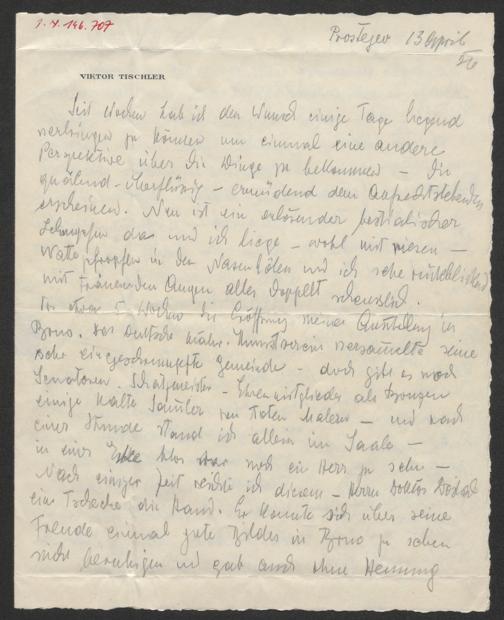 I. N. 146.707
Prostejov 13 April
26
VIKTOR TISCHLER
Seit Wochen hab ich den Wunsch einige Tage liegend
verbringen zu können um einmal eine andere
Perspektive über die Dinge zu bekommen – die
quälend – überflüssig – ermüdend dem Aufrechtstehenden
erscheinen. Nun ist ein erlösender bestialischer
da und ich liege – wohl mit –
Wattepfropfen in den Nasenhölen und ich sehe rückblickend
mit tränenden Augen alles doppelt scheusslich.
Vor etwa 5 Wochen die Eröffnung meiner Ausstellung in
Brno. Der Deutsche mähr. Kunstverein versammelte seine
sehr eingeschrumpfte Gemeinde – doch gibt es noch
Senatoren. Schatzmeister – Ehrenmitglieder als Bronzen
einige kalte Sammler von toten Malern – und nach
einer Stunde stand ich allein im Saale –
in einer Ecke blos war noch ein Herr zu sehn –
Nach einiger Zeit reichte ich diesem – Herrn Doktor
eine Tscheche die Hand. Er konnte sich über seine
Freude einmal gute Bilder in Brno zu sehen
nicht beruhigen und gab auch ohne Hemmung